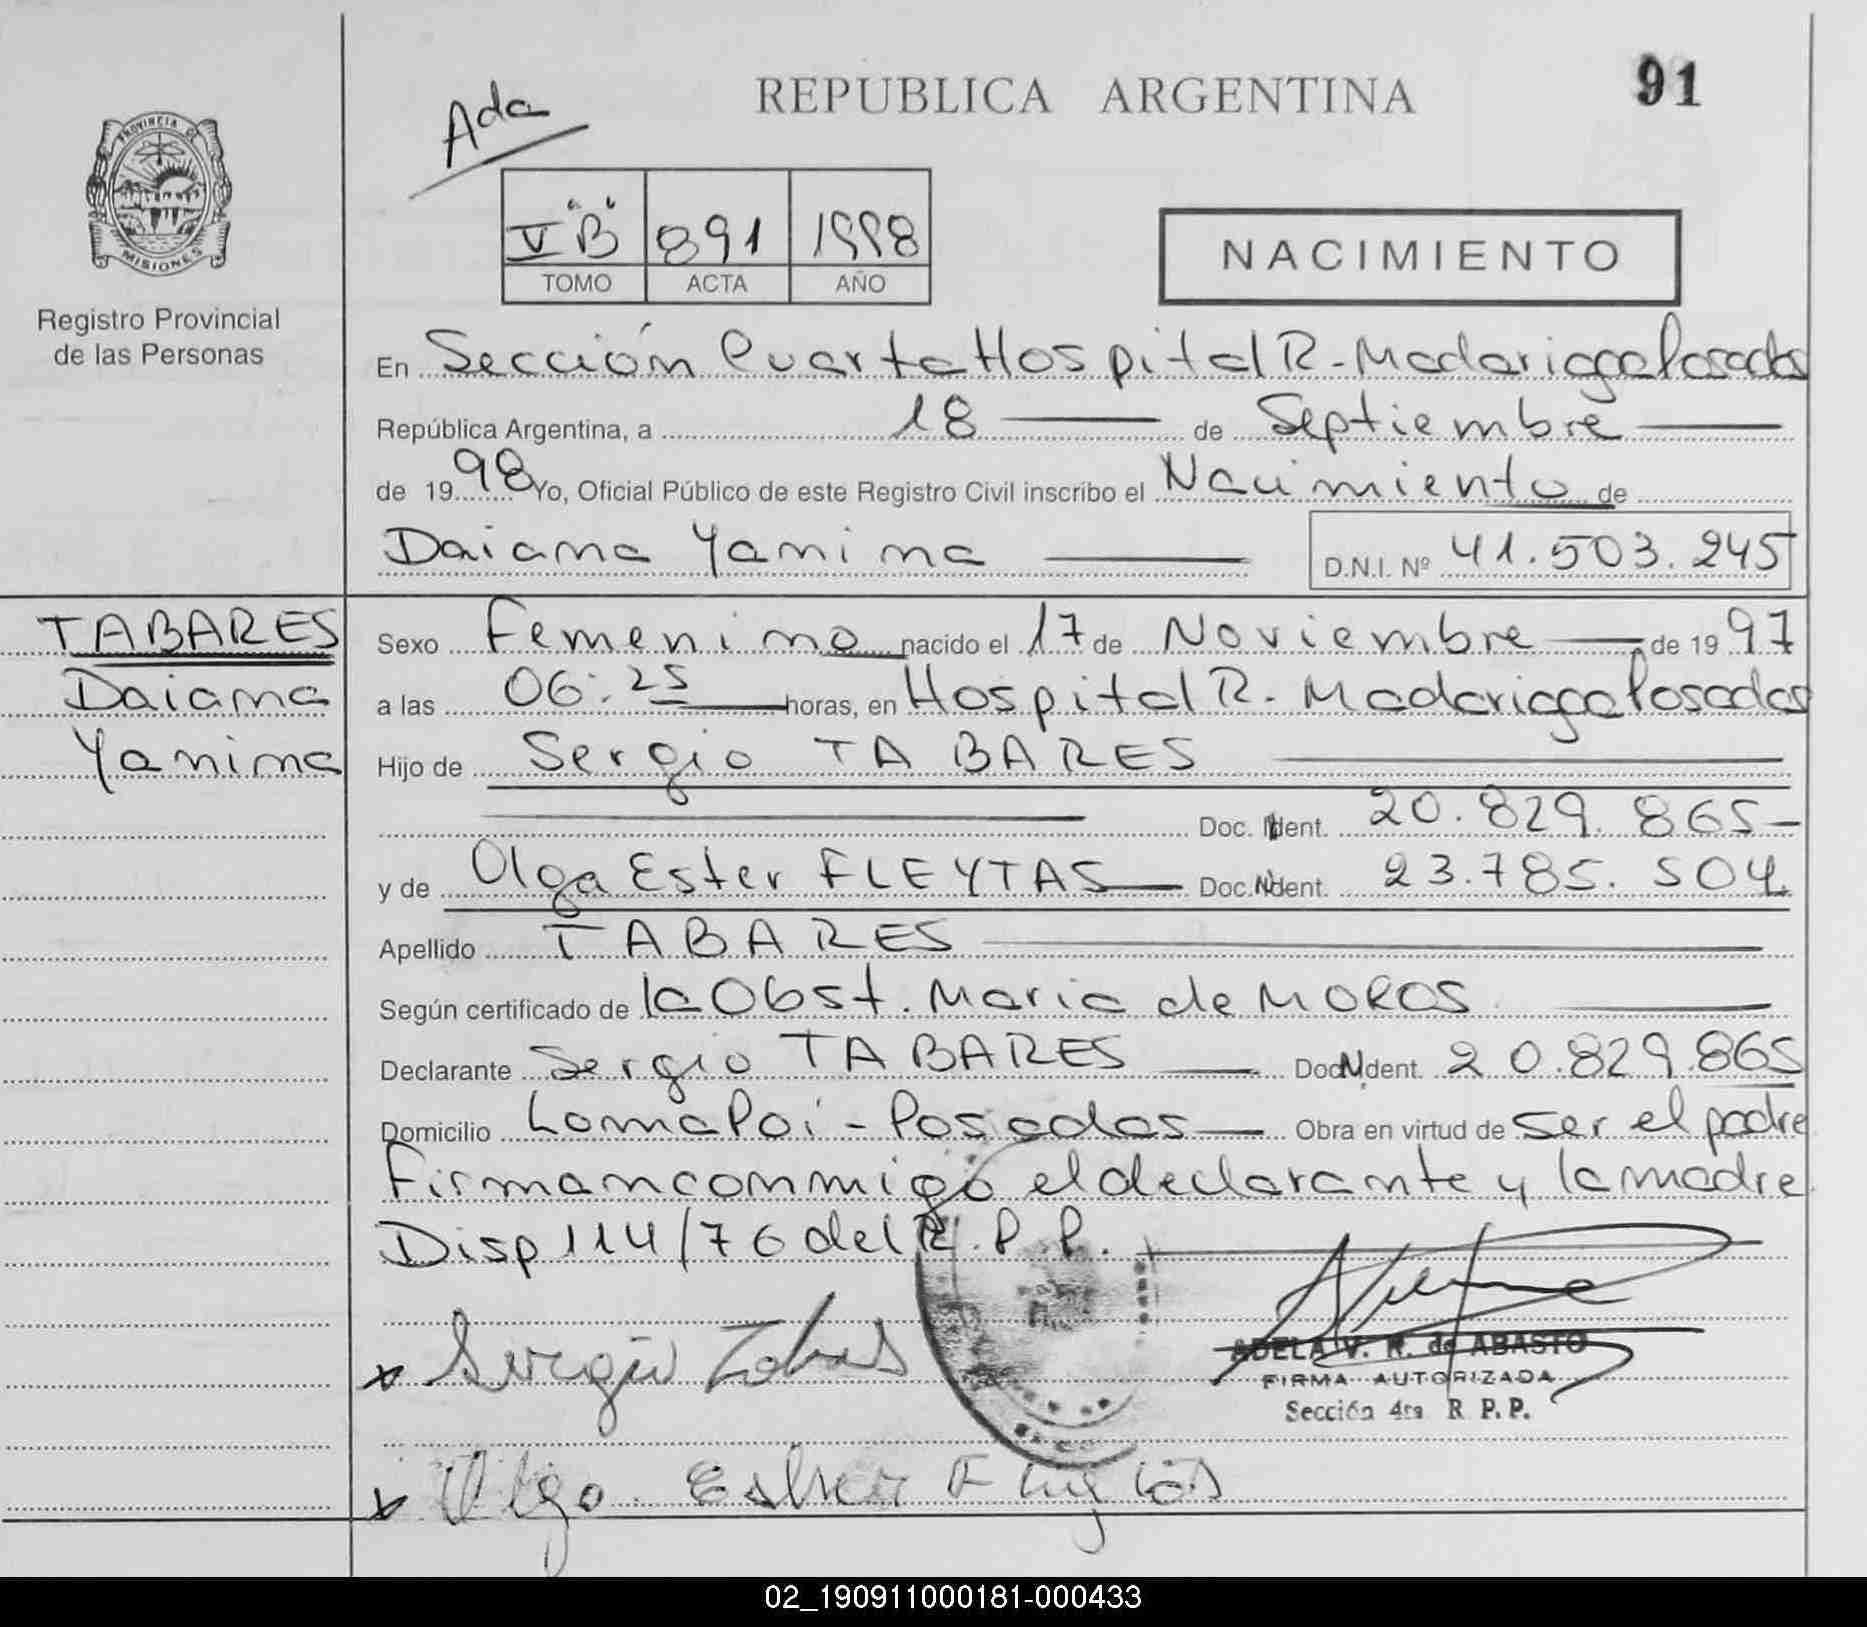 Ada
REPUBLICA ARGENTINA
91
PROVINCIA DE
MISIONES
Registro Provincial
de las Personas
V "B" 891 1998
TOMO ACTA AÑO
NACIMIENTO
En Sección Cuarta Hospital R. Madariaga Posadas
República Argentina, a 18 de Septiembre
de 1998 Yo, Oficial Público de este Registro Civil inscribo el Nacimiento de
Daiana Yanina D.N.I. Nº 41.503.245
TABARES
Daiana
Yanina
Sexo Femenino nacido el 17 de Noviembre de 1997
a las 06:25 horas, en Hospital R. Madariaga Posadas
Hijo de Sergio TABARES
Doc. Ident. 20.829.865
y de Olga Ester FLEYTAS Doc. Ident. 23.785.504
Apellido TABARES
Según certificado de la Obst. Maria de MOROS
Declarante Sergio TABARES Doc. Ident. 20.829.865
Domicilio Loma Poi - Posadas Obra en virtud de ser el padre
Firman conmigo el declarante y la madre
Disp 114/76 del R.P.P.
x Sergio
ADELA V. R. de ABASTO
FIRMA AUTORIZADA
Sección 4ta R.P.P.
x Olga Esher
02_190911000181-000433